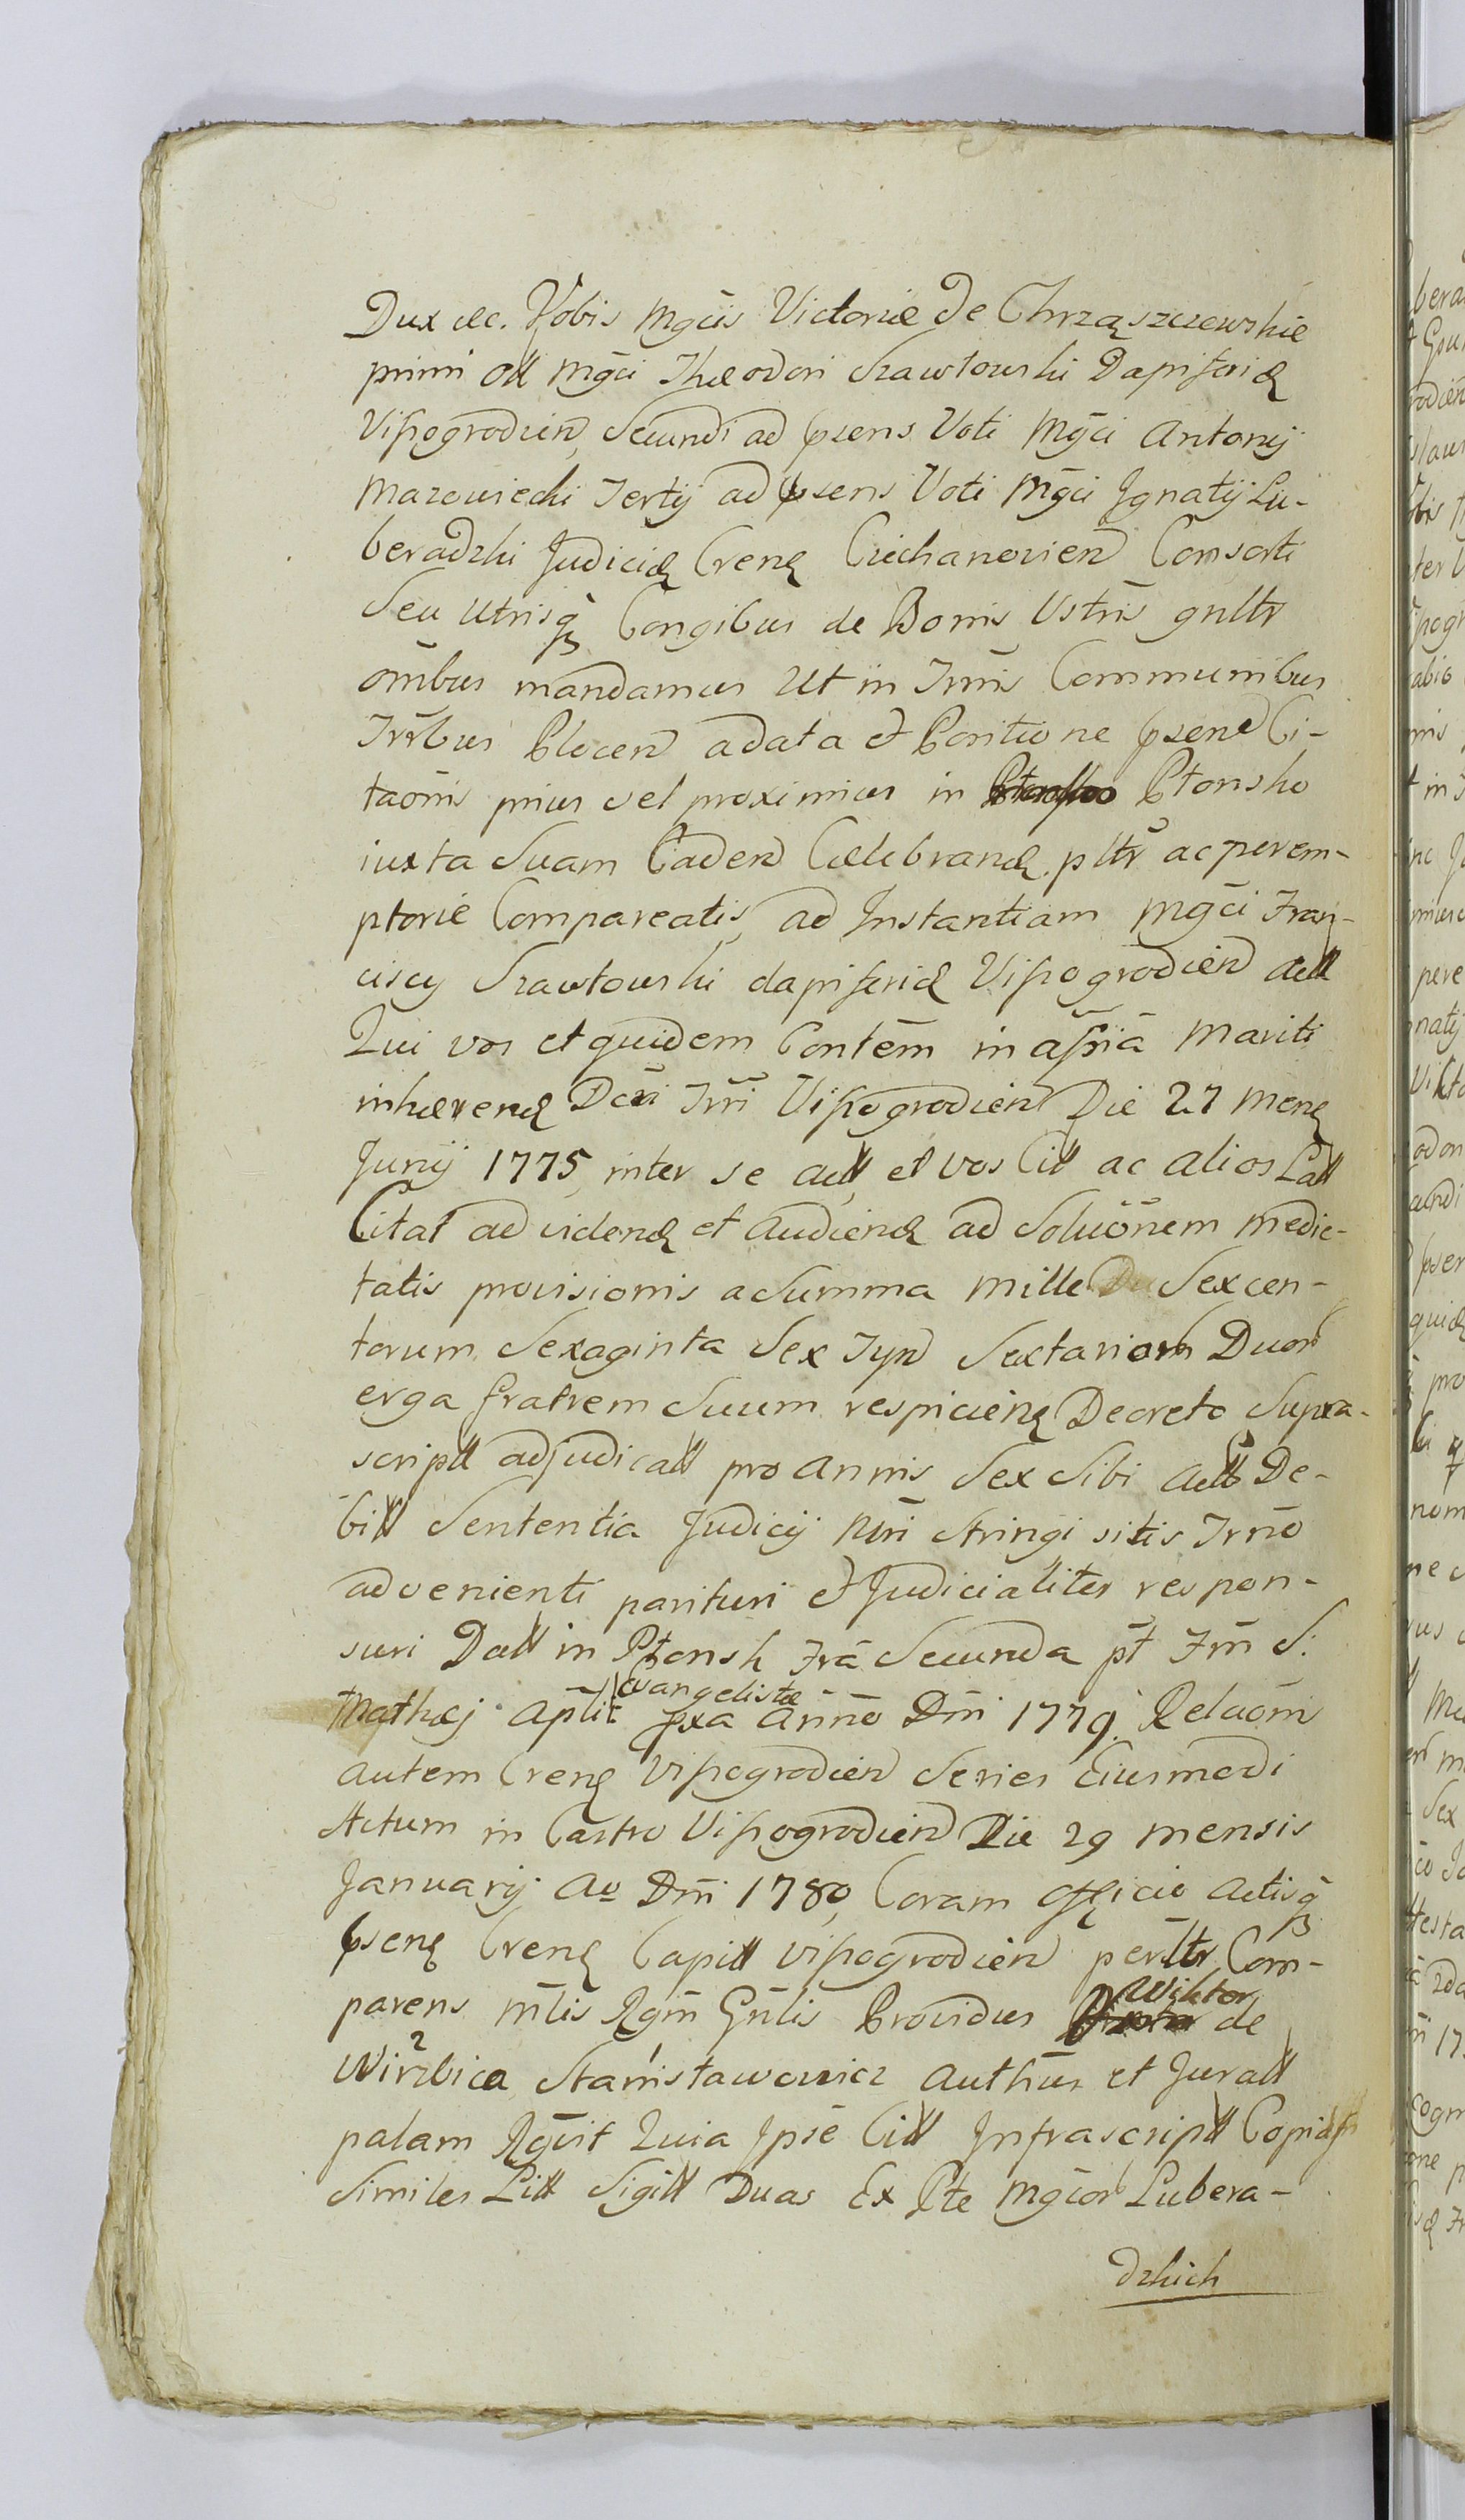 Dux etc. Vobis Mgcis Victoriæ de Chrząszczewskie
primi oll Mgci Theodori Szawłowski Dapiferid
Viſzogrodien, Secundi ad præsens Voti Mgci Antonij
Mazowiecki Tertij ad præsens Voti Mgci Ignatij Lu-
beradzki Judicid Cren Ciechanovien Consorti
Seu utrisq Congibus de Bonis Vstris gnltr
omnibus mandamus Ut in Trmis Communibus
Trrbus Plocen a data et Positione præsen Ci-
taonis prius vel proximius in Płonsko
iuxta Suam Caden Celebrand pltr ac perem-
ptorie Compareatis, ad Instantiam Mgci Fran-
ciscy Szawłowski dapiferid Viſzogrodien Actt
Qui vos et quidem Contem in assia Mariti
inhærend Dcri Trri Viſzogrodien Die 27 Mens
Junij 1775, inter se Actt, et vos Citt ac alios Latt
Citat ad vidend et Audiend ad Soluonem medie-
tatis provisionis a Summa Mille Sexcen-
torum Sexaginta Sex Tyn Sextariorum Duor
erga fratrem Suum respiciens Decreto Supra-
scriptt adjudicatt pro Annis Sex Sibi Actt De-
bitt Sententia Judicij Nri Stringi sitis Trno
advenienti parituri et Judicialiter respon-
suri Datt in Płonsk Fra Secunda pt Fm S:
Mathæj Aplit Evangelistæ pxa Anno Dni 1779. Relaonis
autem Cren Viſzogrodien Series Eiusmodi
Actum in Castro Viſzogrodien Die 29 mensis
Januarij Ao Dni 1780, Coram Officio Actisq
præsen Cren Capitt Viſzogrodien perltr Com-
parens Mtlis Rgni Gnlis Providus Wiktor de
Wirzbica Stanisławowicz Authus et Juratt
palam Rgvit Quia Ipse Citt Infrascriptt Copiis
Similes Litt Sigitt Duas Ex Pte Mgcor Lubera-
dzkich